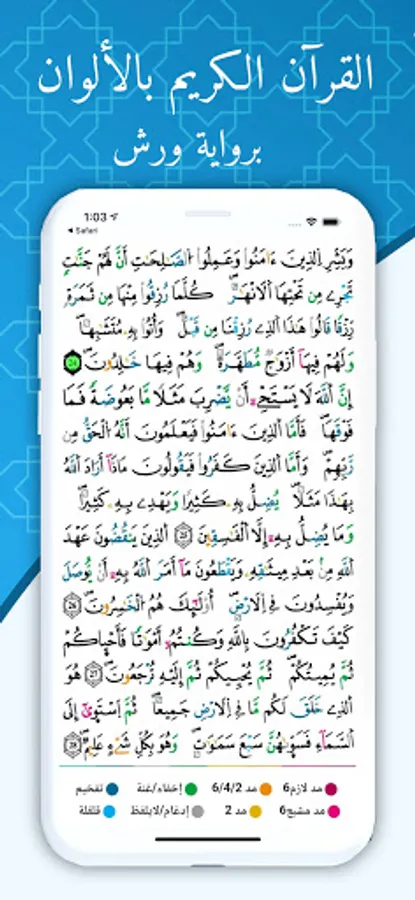 القرآن الكريم بالألوان
برواية ورش
1:03
Safari
وَبَشِّرِ اِ۬لذِينَ ءَامَنُواْ وَعَمِلُواْ اُ۬لصَّٰلِحَٰتِ أَنَّ لَهُمْ جَنَّٰتٖ
تَجْرِے مِن تَحْتِهَا اَ۬لَانْهَٰرُۖ كُلَّمَا رُزِقُواْ مِنْهَا مِن ثَمَرَةٖ
رِّزْقاٗ قَالُواْ هَٰذَا اَ۬لذِے رُزِقْنَا مِن قَبْلُۖ وَأُتُواْ بِهِۦ مُتَشَٰبِهاٗۖ
وَلَهُمْ فِيهَآ أَزْوَٰجٞ مُّطَهَّرَةٞۖ وَهُمْ فِيهَا خَٰلِدُونَۖ 24
إِنَّ اَ۬للَّهَ لَا يَسْتَحْيِۦٓ أَنْ يَّضْرِبَ مَثَلاٗ مَّا بَعُوضَةٗ فَمَا
فَوْقَهَاۖ فَأَمَّا اَ۬لذِينَ ءَامَنُواْ فَيَعْلَمُونَ أَنَّهُ اُ۬لْحَقُّ مِن
رَّبِّهِمْۖ وَأَمَّا اَ۬لذِينَ كَفَرُواْ فَيَقُولُونَ مَاذَآ أَرَادَ اَ۬للَّهُ
بِهَٰذَا مَثَلاٗۖ يُضِلُّ بِهِۦ كَثِيراٗ وَيَهْدِے بِهِۦ كَثِيراٗۖ
وَمَا يُضِلُّ بِهِۦٓ إِلَّا اَ۬لْفَٰسِقِينَۖ 25 اَ۬لذِينَ يَنقُضُونَ عَهْدَ
اَ۬للَّهِ مِنۢ بَعْدِ مِيثَٰقِهِۦ وَيَقْطَعُونَ مَآ أَمَرَ اَ۬للَّهُ بِهِۦٓ أَنْ يُّوصَلَ
وَيُفْسِدُونَ فِے اِ۬لَارْضِۖ أُوْلَٰٓئِكَ هُمُ اُ۬لْخَٰسِرُونَۖ 26
كَيْفَ تَكْفُرُونَ بِاللَّهِ وَكُنتُمُۥٓ أَمْوَٰتاٗ فَأَحْيَٰكُمْ
ثُمَّ يُمِيتُكُمْۖ ثُمَّ يُحْيِيكُمْ ثُمَّ إِلَيْهِ تُرْجَعُونَۖ 27 هُوَ
اَ۬لذِے خَلَقَ لَكُم مَّا فِے اِ۬لَارْضِ جَمِيعاٗۖ ثُمَّ اَ۪سْتَوَىٰٓ إِلَى
اَ۬لسَّمَآءِ فَسَوَّىٰهُنَّ سَبْعَ سَمَٰوَٰتٖۖ وَهُوَ بِكُلِّ شَےْءٍ عَلِيمٞۖ 28
مد لازم6 مد 6/4/2 إخفاء/غنة تفخيم
مد مشبع6 مد 2 إدغام/لايلفظ قلقلة